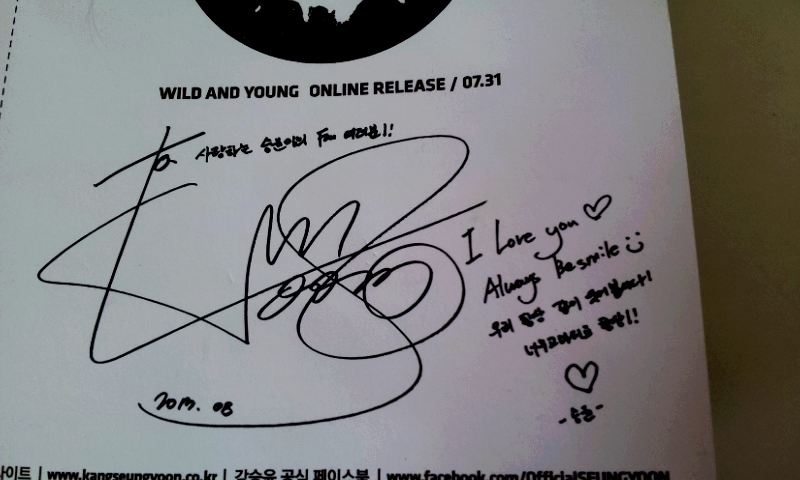 WILD AND YOUNG ONLINE RELEASE / 07.31
To 사랑하는 승윤이의 Fan 여러분!!
I Love you ♡
Always Be smile :)
우리 항상 같이
너무고마워요 항상!!
♡
2013. 08
-승윤-
이트 | www.kangseungyoon.co.kr | 강승윤 공식 페이스북 | www.facebook.com/OfficialSEUNGYOON